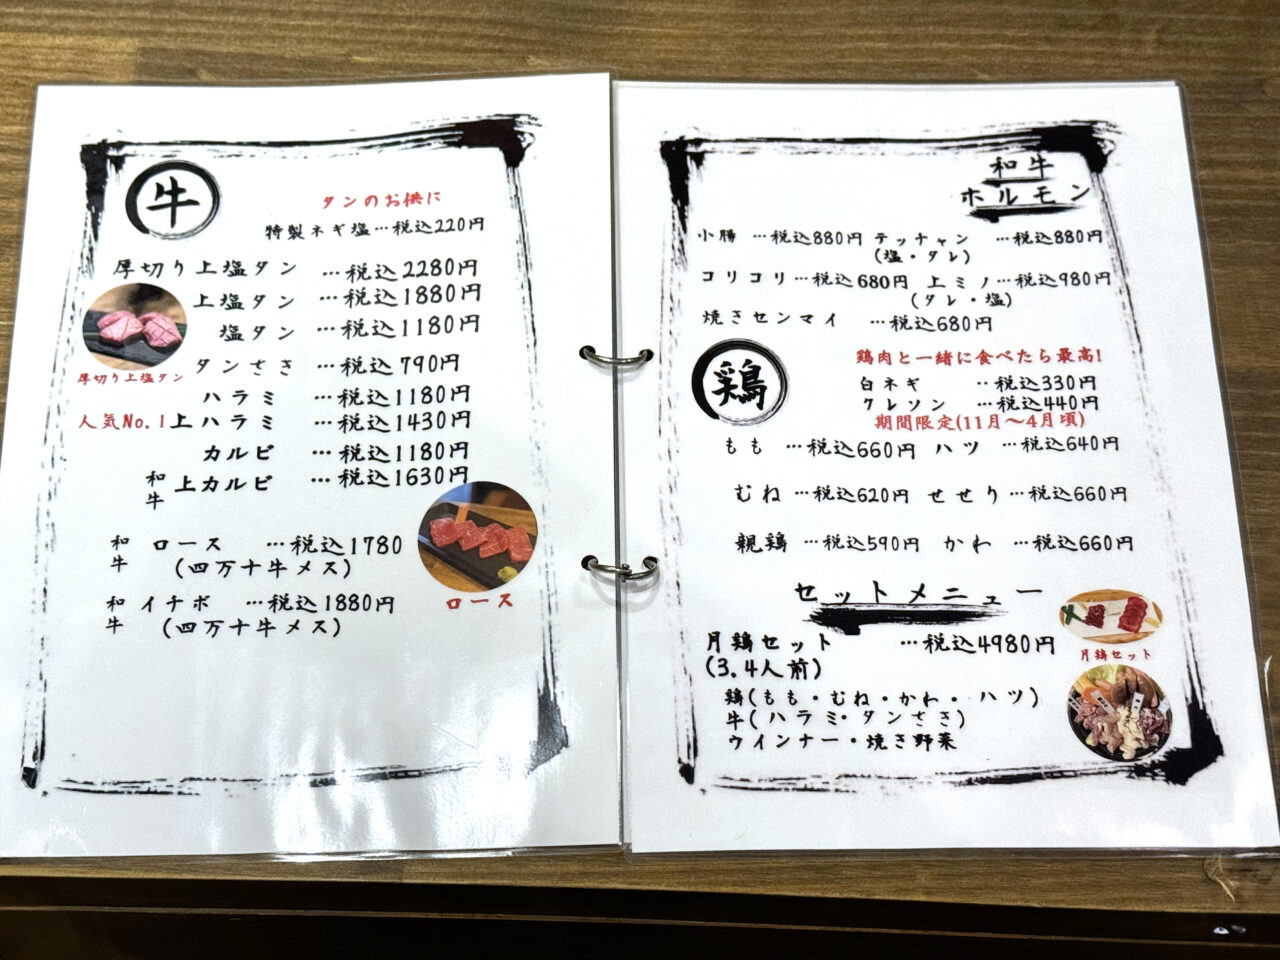 牛
タンのお供に
特製ネギ塩…税込220円
厚切り上塩タン …税込2280円
上塩タン …税込1880円
塩タン …税込1180円
厚切り上塩タン
タンさき …税込790円
ハラミ …税込1180円
人気No.1上ハラミ …税込1430円
カルビ …税込1180円
和牛 上カルビ …税込1630円
和牛 ロース …税込1780
(四万十牛メス)
和牛 イチボ …税込1880円
(四万十牛メス)
ロース
和牛
ホルモン
小腸 …税込880円 テッチャン …税込880円
(塩・タレ)
コリコリ…税込680円 上ミノ…税込980円
(タレ・塩)
焼きセンマイ …税込680円
鶏
鶏肉と一緒に食べたら最高!
白ネギ ‥税込330円
クレソン …税込440円
期間限定(11月～4月頃)
もも …税込660円 ハツ …税込640円
むね …税込620円 せせり …税込660円
親鶏 …税込590円 かわ …税込660円
セットメニュー
月鶏セット …税込4980円
(3.4人前)
月鶏セット
鶏(もも・むね・かわ・ハツ)
牛(ハラミ・タンさき)
ウインナー・焼き野菜